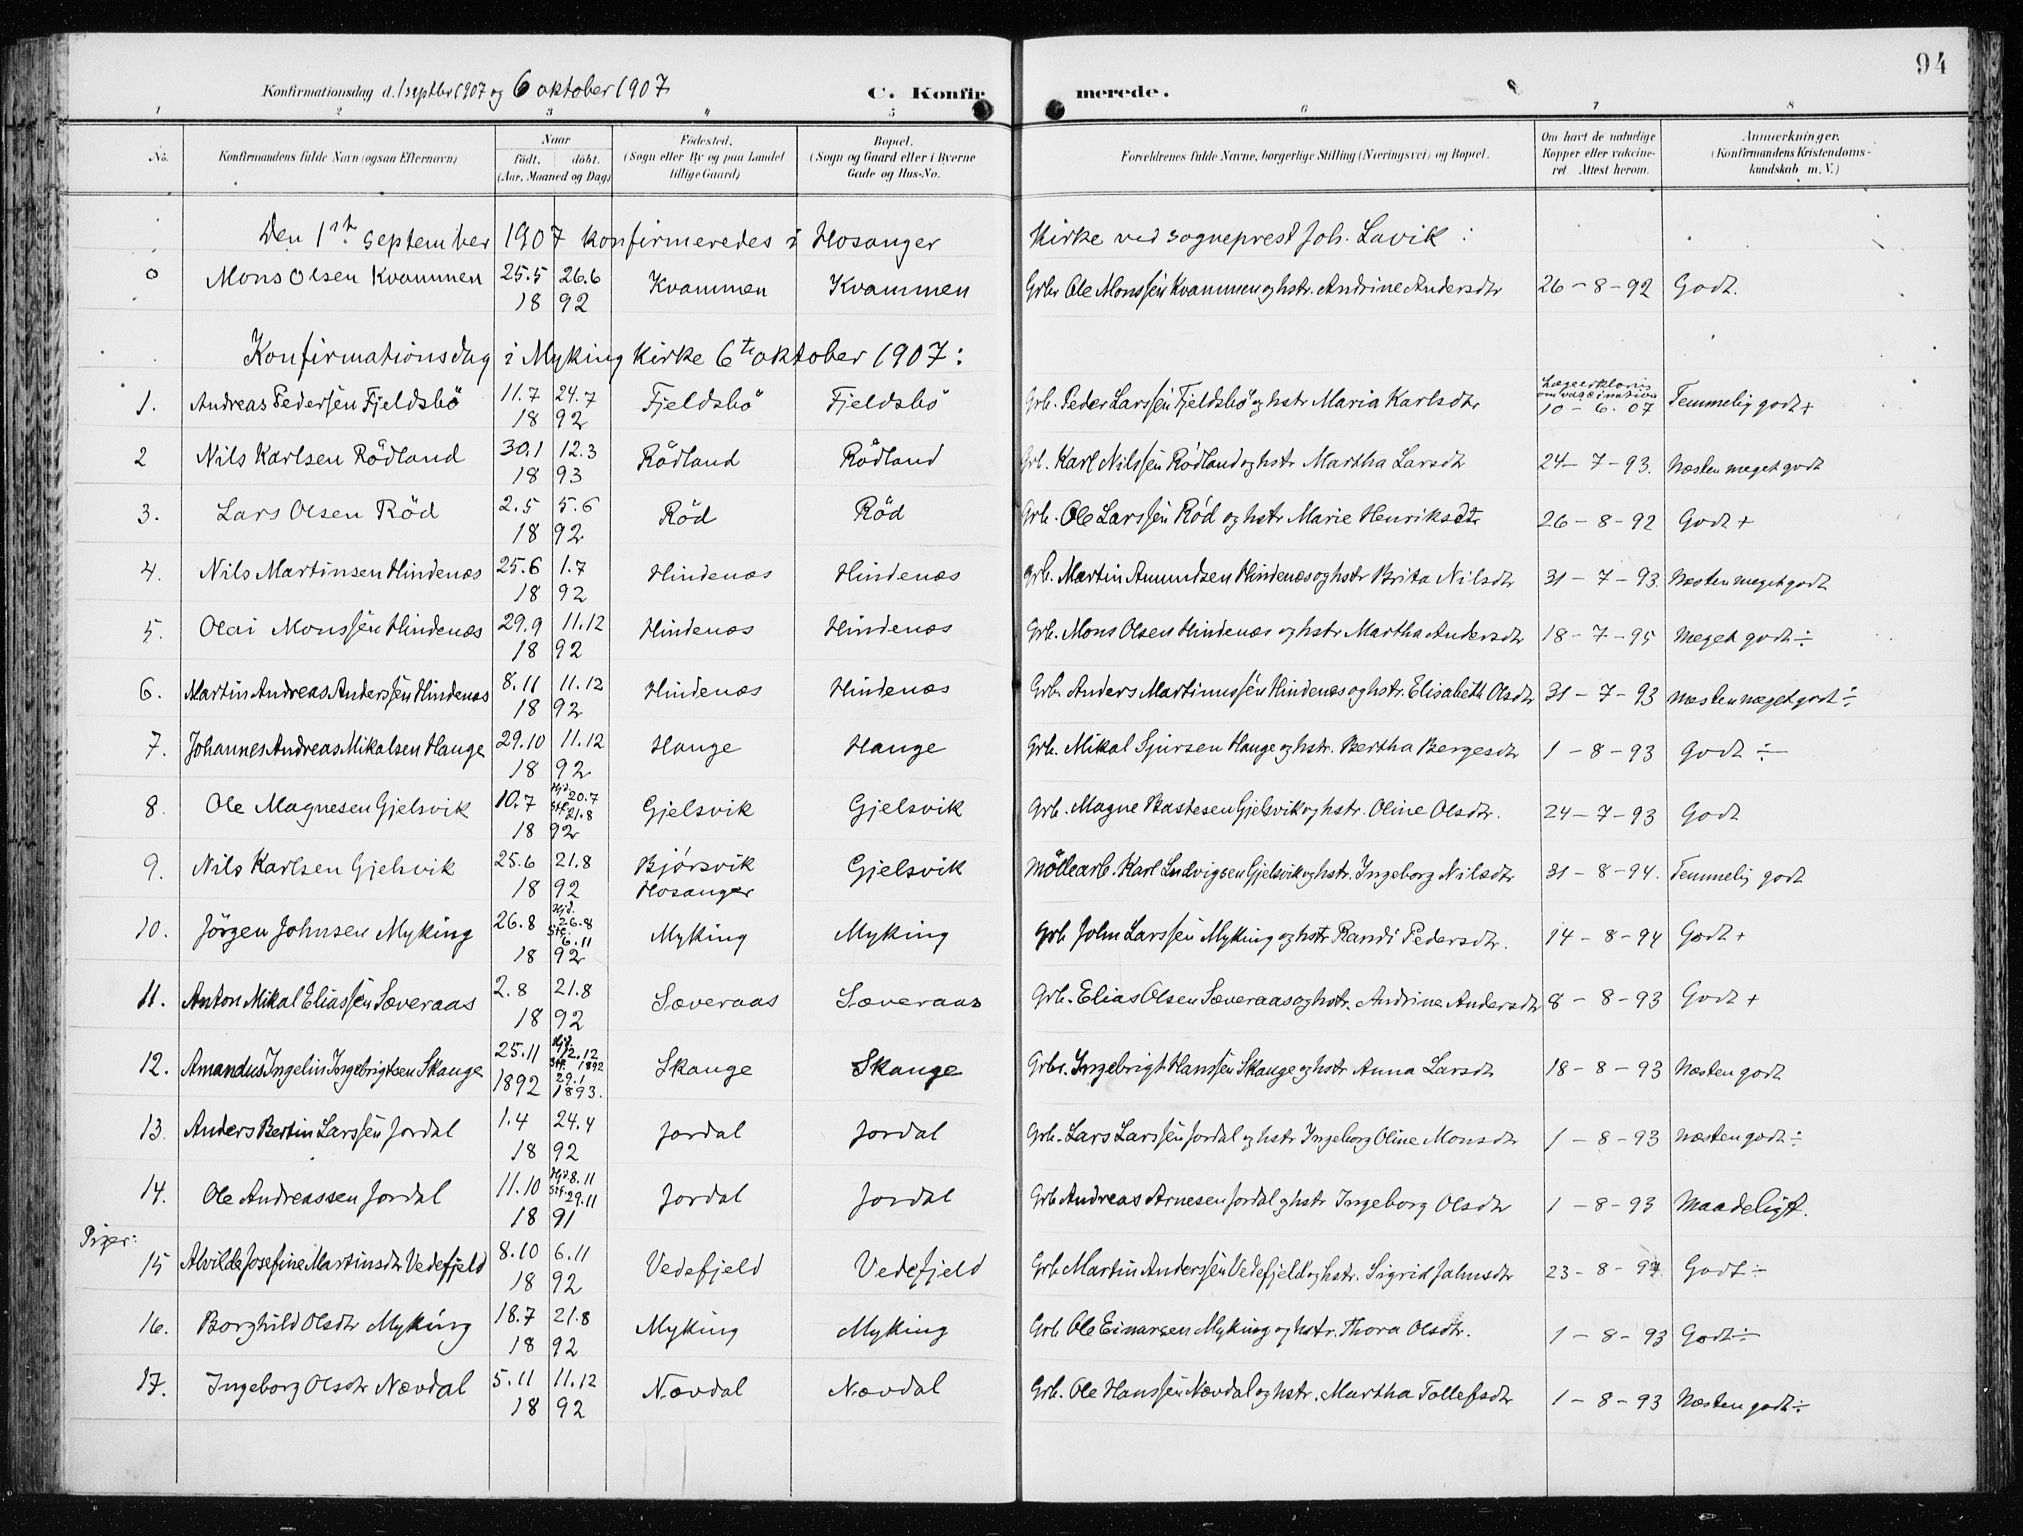 94
Konfirmationsdag d. 1 septbr 1907 og 6 oktober 1907. C. Konfirmerede.
1 2 3 4 5 6 7 8
No. Konfirmandens fulde Navn (ogsaa Efternavn) Naar födt. döbt. (Aar, Maaned og Dag) Födested. (Sogn eller By og paa Landet tillige Gaard) Bopæl. (Sogn og Gaard eller i Byerne Gade og Hus-No. Forældrenes fulde Navne, borgerlige Stilling (Næringsvei) og Bopæl. Om havt de naturlige Kopper eller vakcineret. Attest herom. Anmærkninger. (Konfirmandens Kristendomskundskab m. V.)
Den 1ste september 1907 konfirmeredes i Hosanger Kirke ved sogneprest Joh. Lavik :
0 Mons Olsen Kvammen 25.5 26.6 1892 Kvammen Kvammen Grbr Ole Monssen Kvammen og hstr. Andrine Andersdtr 26-8-92 Godt.
Konfirmationsdag i Myking Kirke 6te oktober 1907 :
1. Andreas Pedersen Fjeldsbö 11.7 24.7 1892 Fjeldsbö Fjeldsbö Grb. Peder Larssen Fjeldsbö og hstr Maria Karlsdtr Lægeerklæring om vaccination 10-6-07 Temmelig godt +
2 Nils Karlsen Rödland 30.1 12.3 1893 Rödland Rödland Grb. Karl Nilssen Rödland og hstr Martha Larsdtr 24-7-93. Næsten meget godt
3. Lars Olsen Röd 2.5 5.6 1892 Röd Röd Grb. Ole Larssen Röd og hstr Marie Henriksdtr 26-8-92 Godt +
4. Nils Martinsen Hindenæs 25.6 1.7 1892 Hindenæs Hindenæs Grb. Martin Amundsen Hindenæs og hstr Brita Nilsdtr 31-7-93. Næsten meget godt
5. Olai Monssen Hindenæs 29.9 11.12 1892 Hindenæs Hindenæs Grb. Mons Olsen Hindenæs og hstr Martha Andersdtr 18-7-95 Meget godt ÷
6. Martin Andreas Anderssen Hindenæs 8.11 11.12 1892 Hindenæs Hindenæs Grb. Anders Martinussen Hindenæs og hstr. Elisabeth Olsdtr 31-7-93 Næsten meget godt ÷
7. Johannes Andreas Mikalsen Hauge 29.10 11.12 1892 Hauge Hauge Grb. Mikal Sjursen Hauge og hstr. Bertha Bergesdtr 1-8-93 Godt ÷
8. Ole Magnesen Gjelsvik 10.7 Hjd. 20.7 Stf. 21.8 1892 Gjelsvik Gjelsvik Grb. Magne Bastesen Gjelsvik og hstr. Oline Olsdtr. 24-7-93 Godt
9. Nils Karlsen Gjelsvik 25.6 21.8 1892 Bjørsvik Hosanger Gjelsvik Möllearb. Karl Ludvigsen Gjelsvik og hstr. Ingeborg Nilsdtr 31-8-94. Temmelig godt
10. Jörgen Johnsen Myking 26.8 Hjd. 26.8 Stf. 6.11 1892 Myking Myking Grb John Larssen Myking og hstr Randi Pedersdtr. 14-8-94 Godt +
11. Anton Mikal Eliassen Sæveraas 2.8 21.8 1892 Sæveraas Sæveraas Grb. Elias Olsen Sæveraas og hstr. Andrine Andersdtr 8-8-93 Godt +
12. Amandus Ingelin Ingebrigtsen Skauge 25.11 1892 Hjd. 12.12 1892 Stf. 29.1 1893. Skauge Skauge Grbr. Ingebrigt Hanssen Skauge og hstr Anna Larsdtr 18-8-93 Næsten godt
13. Anders Bertin Larssen Jordal 1.4 24.4 1892 Jordal Jordal Grb. Lars Larssen Jordal og hstr Ingeborg Oline Monsdtr 1-8-93 Næsten godt ÷
14. Ole Andreassen Jordal 11.10 Hjd. 8.11 Stf. 29.11 1891 Jordal Jordal Grb Andreas Arnesen Jordal og hstr Ingeborg Olsdtr 1-8-93 Maadeligt.
Piger:
15 Alvilde Josefine Martinsdtr Vedefjeld 8.10 6.11 1892 Vedefjeld Vedefjeld Grb Martin Anderssen Vedefjeld og hstr. Sigrid Johnsdtr 23-8-94 Godt ÷
16. Borghild Olsdtr Myking 18.7 21.8 1892 Myking Myking Grb Ole Einarsen Myking og hstr. Thora Olsdtr. 1-8-93 Godt ÷
17. Ingeborg Olsdtr Nævdal 5.11 11.12 1892 Nævdal Nævdal Grb. Ole Hanssen Nævdal og hstr. Martha Tollefsdtr 1-8-93 Næsten godt ÷